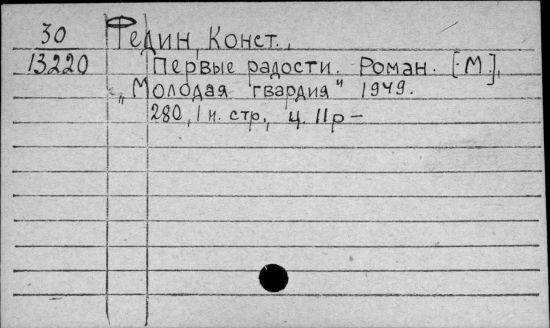 30 Федин, Конст.,
13220 Первые радости. Роман. [М.],
„Молодая гвардия" 1949.
280, 1 н. стр., ц. 11р –